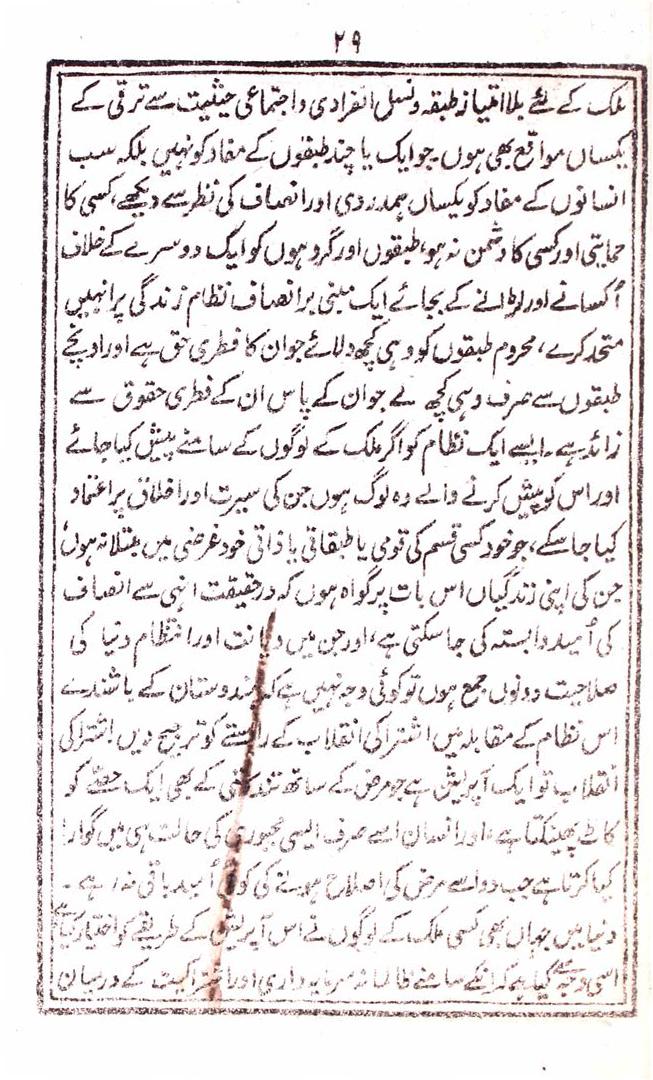 ۲۹
ملک کے لئے بلا امتیاز طبقہ و نسل انفرادی و اجتماعی حیثیت سے ترقی کے
یکساں مواقع بھی ہوں۔ جو ایک یا چند طبقوں کے مفاد کو نہیں بلکہ سب
انسانوں کے مفاد کو یکساں ہمدردی اور انصاف کی نظر سے دیکھے، کسی کا
حمایتی اور کسی کا دشمن نہ ہو، طبقوں اور گروہوں کو ایک دوسرے کے خلاف
اُکسانے اور لڑانے کے بجائے ایک مبنی بر انصاف نظام زندگی پر انہیں
متحد کرے، محروم طبقوں کو وہی کچھ دلائے جو ان کا فطری حق ہے اور اونچے
طبقوں سے صرف وہی کچھ لے جو ان کے پاس ان کے فطری حقوق سے
زائد ہے۔ ایسے ایک نظام کو اگر ملک کے لوگوں کے سامنے پیش کیا جائے
اور اس کو پیش کرنے والے وہ لوگ ہوں جن کی سیرت اور اخلاق پر اعتماد
کیا جا سکے، جو خود کسی قسم کی قومی یا طبقاتی یا ذاتی خود غرضی میں مبتلا نہ ہوں،
جن کی اپنی زندگیاں اس بات پر گواہ ہوں کہ درحقیقت انہی سے انصاف
کی اُمید وابستہ کی جا سکتی ہے، اور جن میں دیانت اور انتظام دنیا کی
صلاحیت دونوں جمع ہوں تو کوئی وجہ نہیں ہے کہ ہندوستان کے باشندے
اس نظام کے مقابلہ میں اشتراکی انقلاب کے راستے کو ترجیح دیں۔ اشتراکی
انقلاب تو ایک آپریشن ہے جو مرض کے ساتھ تندرستی کے بھی ایک حصے کو
کاٹ پھینکتا ہے، اور انسان اسے صرف ایسی مجبوری کی حالت ہی میں گوارا
کیا کرتا ہے جب دوا سے مرض کی اصلاح ہونے کی کوئی اُمید باقی نہ رہے۔
دنیا میں جہاں بھی کسی ملک کے لوگوں نے اس آپریشن کے طریقے کو اختیار کیا ہے
اسی وجہ سے کیا ہے کہ انکے سامنے ظالمانہ سرمایہ داری اور اشتراکیت کے درمیان